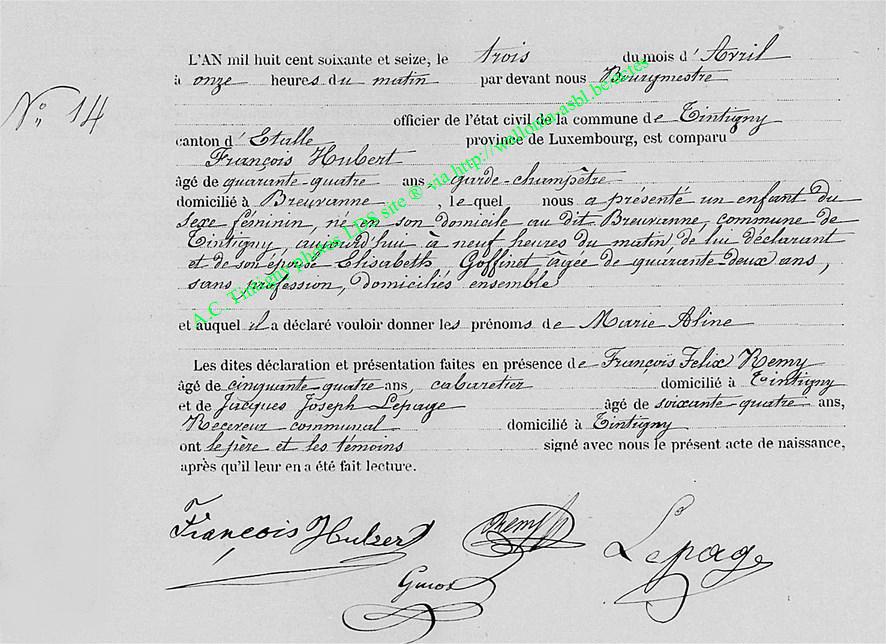 L'AN mil huit cent soixante et seize, le trois du mois d'Avril
à onze heures du matin par devant nous Bourgmestre
N° 14
officier de l'état civil de la commune de Tintigny
canton d'Etalle province de Luxembourg, est comparu
François Hubert
âgé de quarante-quatre ans garde-champêtre
domicilié à Breuvanne, le quel nous a présenté un enfant du
sexe féminin, né en son domicile au dit Breuvanne, commune de
Tintigny, aujourd'hui à neuf heures du matin, de lui déclarant
et de son épouse Elisabeth Goffinet âgée de quarante-deux ans,
sans profession, domiciliés ensemble
et auquel il a déclaré vouloir donner les prénoms de Marie Aline
Les dites déclaration et présentation faites en présence de François Felix Remy
âgé de cinquante-quatre ans, cabaretier domicilié à Tintigny
et de Jacques Joseph Lepage âgé de soixante-quatre ans,
Receveur communal domicilié à Tintigny
ont le père et les témoins signé avec nous le présent acte de naissance,
après qu'il leur en a été fait lecture.
François Hubert Remy Lepage
A.C. Tintigny photos LDS site ® via http://wallonia-asbl.be/actes